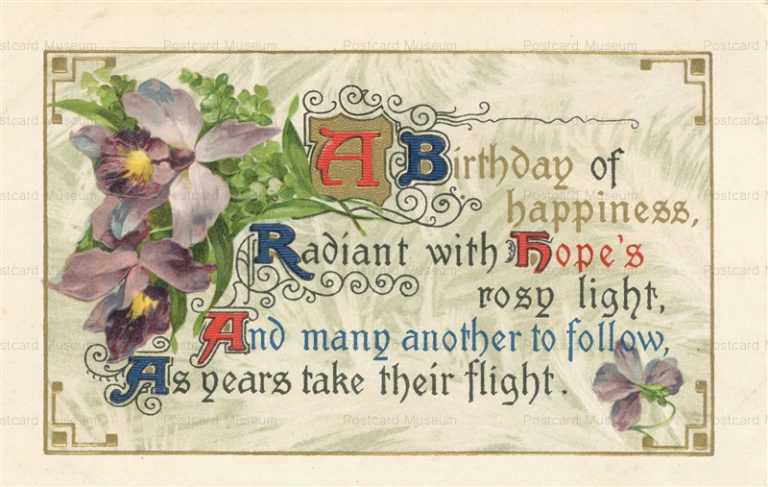 A Birthday of
happiness,
Radiant with Hope's
rosy light,
And many another to follow,
As years take their flight.
Postcard Museum